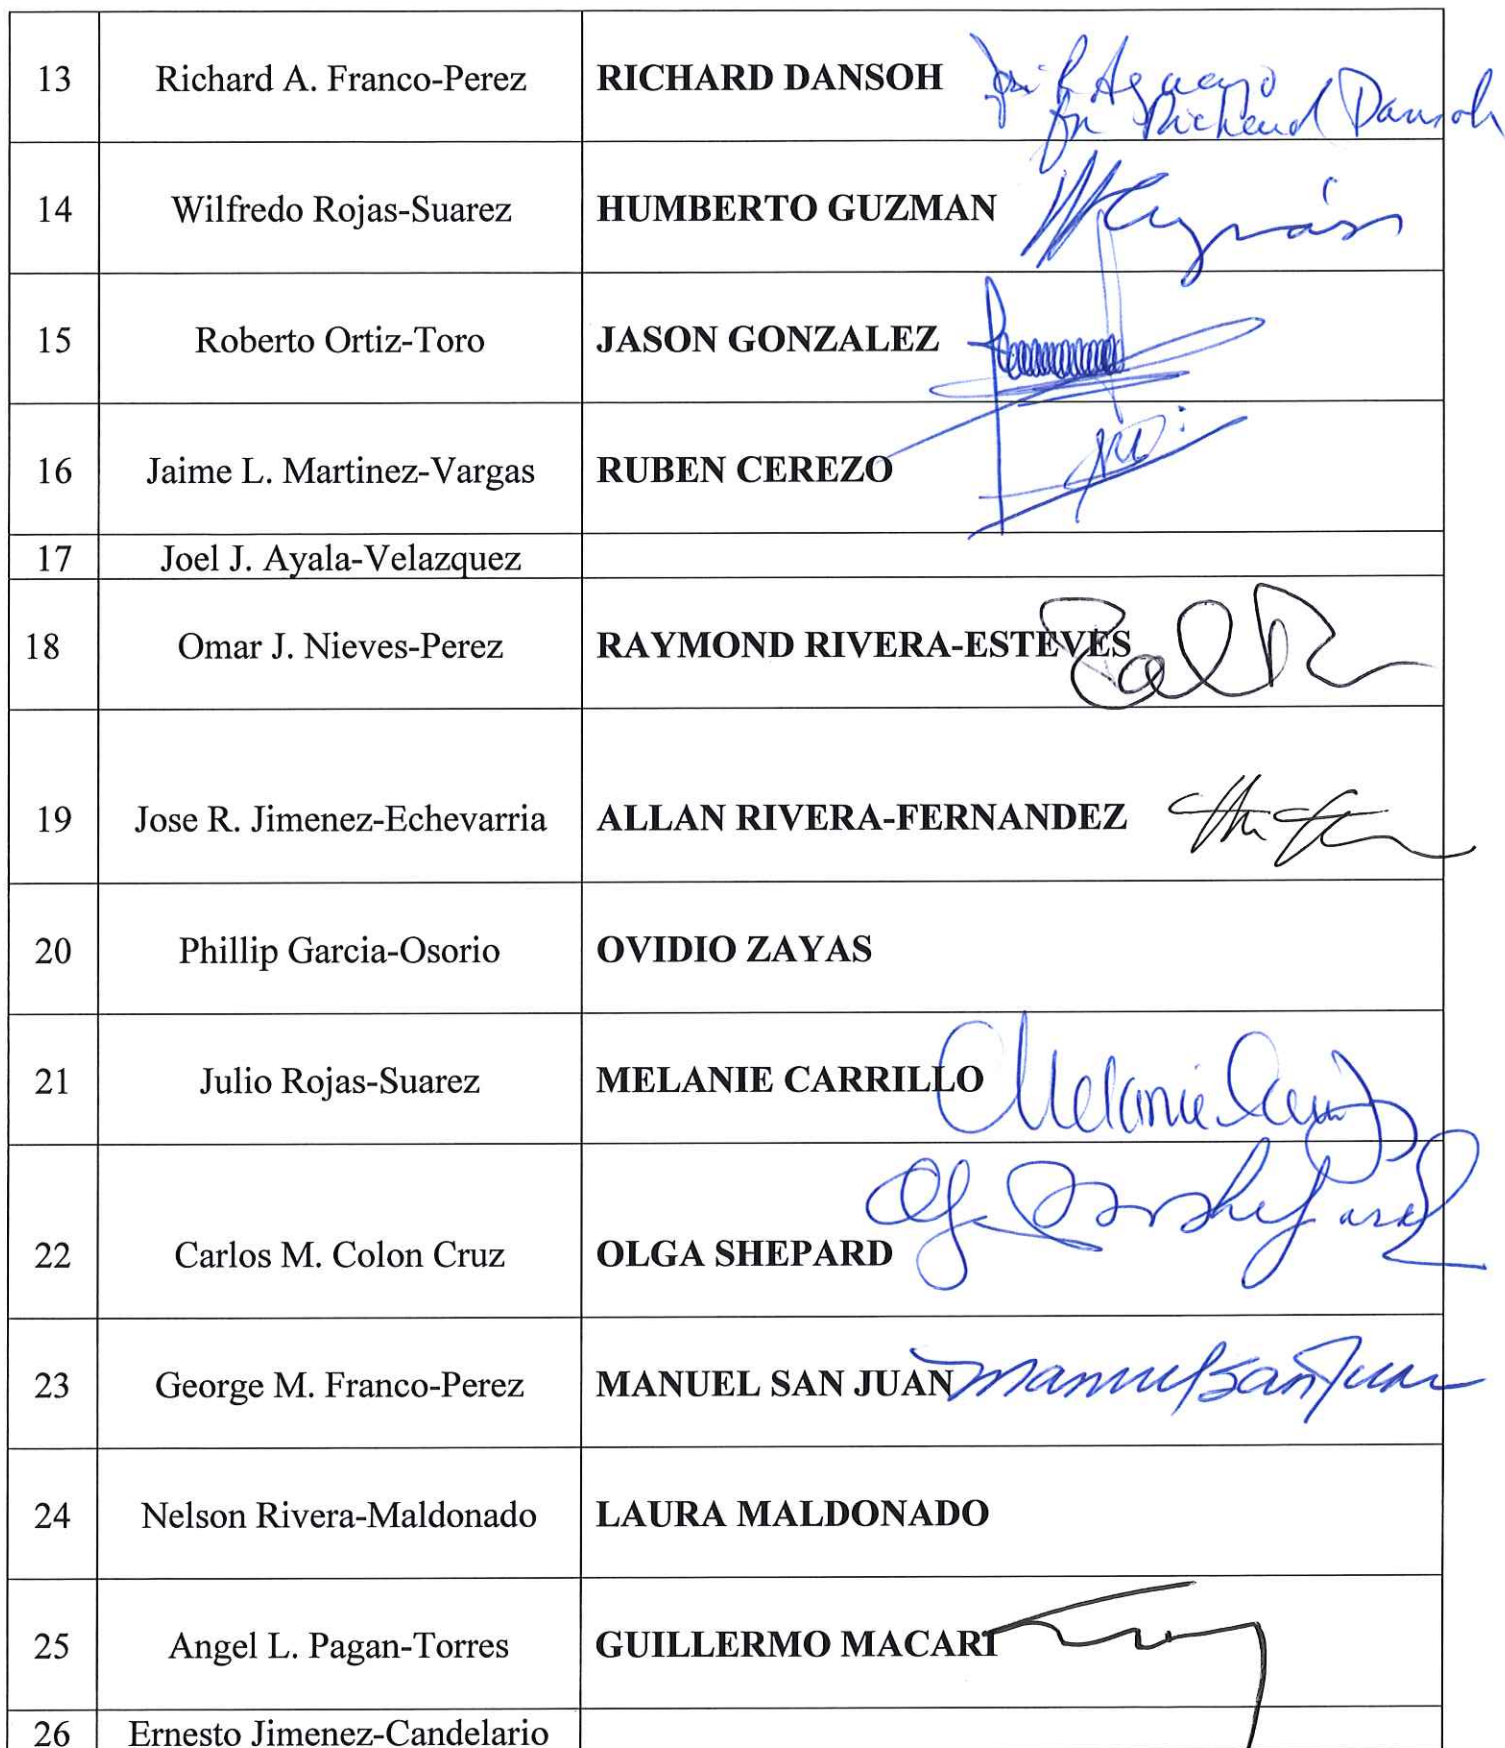 13 Richard A. Franco-Perez RICHARD DANSOH
for Richard Dansoh
14 Wilfredo Rojas-Suarez HUMBERTO GUZMAN
15 Roberto Ortiz-Toro JASON GONZALEZ
16 Jaime L. Martinez-Vargas RUBEN CEREZO
17 Joel J. Ayala-Velazquez
18 Omar J. Nieves-Perez RAYMOND RIVERA-ESTEVES
19 Jose R. Jimenez-Echevarria ALLAN RIVERA-FERNANDEZ
20 Phillip Garcia-Osorio OVIDIO ZAYAS
21 Julio Rojas-Suarez MELANIE CARRILLO Melanie
22 Carlos M. Colon Cruz OLGA SHEPARD
23 George M. Franco-Perez MANUEL SAN JUAN Manuel San Juan
24 Nelson Rivera-Maldonado LAURA MALDONADO
25 Angel L. Pagan-Torres GUILLERMO MACARI
26 Ernesto Jimenez-Candelario